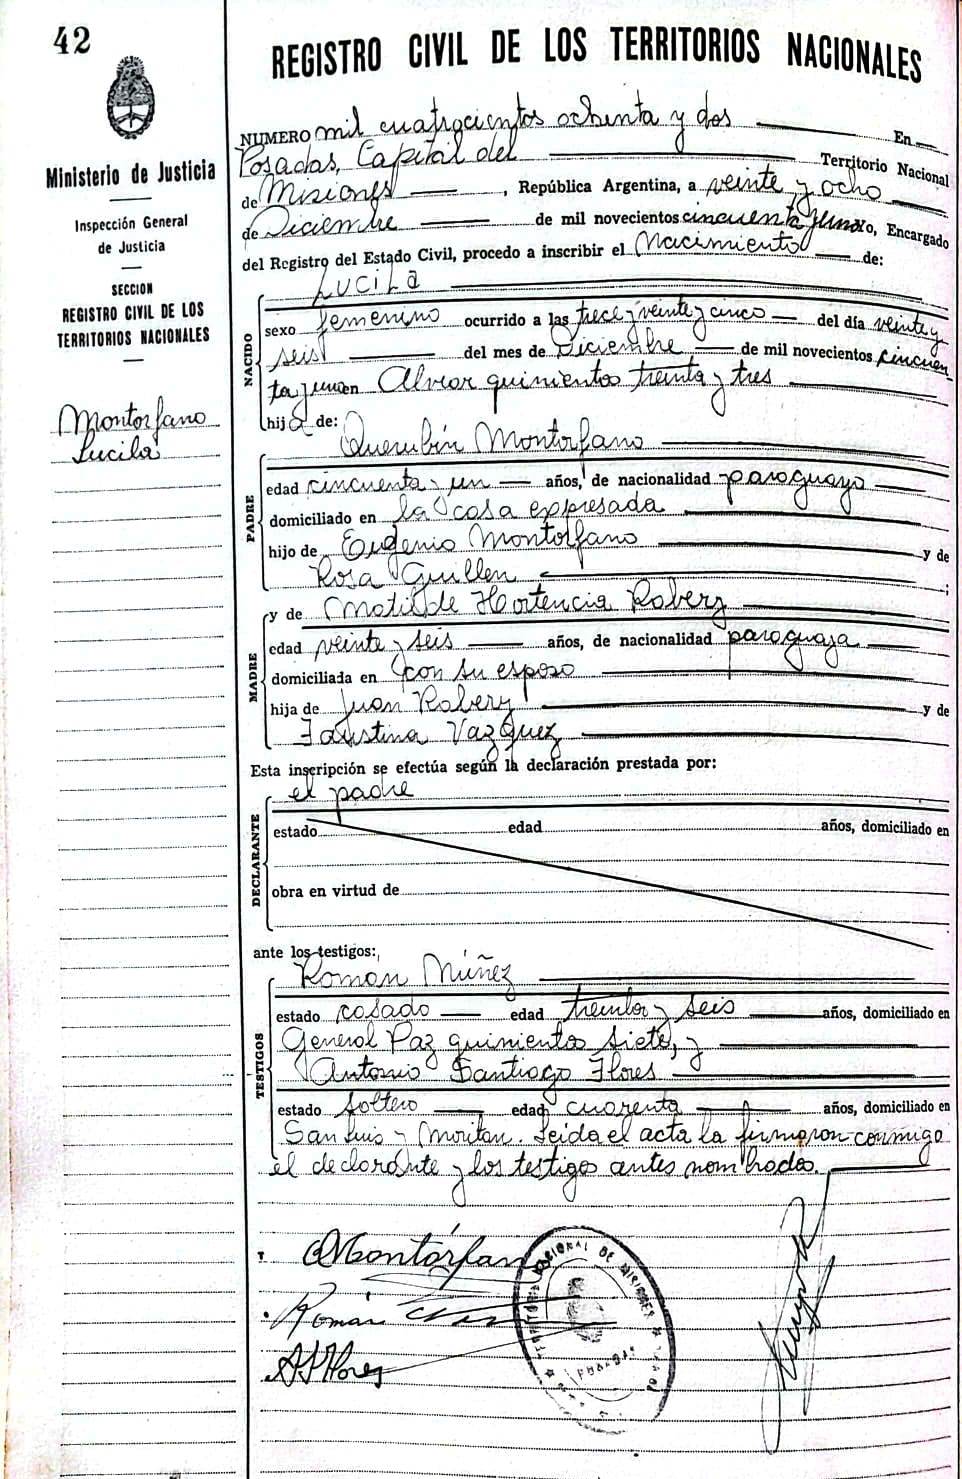 42
REGISTRO CIVIL DE LOS TERRITORIOS NACIONALES
Ministerio de Justicia
Inspección General
de Justicia
SECCION
REGISTRO CIVIL DE LOS
TERRITORIOS NACIONALES
Montorfano
Lucila
NUMERO mil cuatrocientos ochenta y dos En
Posadas, Capital del Territorio Nacional
de Misiones, República Argentina, a veinte y ocho
de Diciembre de mil novecientos cincuenta y uno, Encargado
del Registro del Estado Civil, procedo a inscribir el Nacimiento de:
NACIDO
LUCILA
sexo femenino ocurrido a las trece y veinte y cinco del día veinte y
seis del mes de Diciembre de mil novecientos cincuen
ta y uno en Alvear quinientos treinta y tres
hija de:
PADRE
Querubín Montorfano
edad cincuenta y un años, de nacionalidad paraguayo
domiciliado en la casa expresada
hijo de Eugenio Montorfano y de
Rosa Guillen ;
MADRE
y de Matilde Hortencia Robery
edad veinte y seis años, de nacionalidad paraguaya
domiciliada en con su esposo
hija de Juan Robery y de
Faustina Vazquez
Esta inscripción se efectúa según la declaración prestada por:
DECLARANTE
el padre
estado edad años, domiciliado en
obra en virtud de
ante los testigos:
TESTIGOS
Roman Núñez
estado casado edad treinta y seis años, domiciliado en
General Paz quinientos siete, y
Antonio Santiago Flores
estado soltero edad cuarenta años, domiciliado en
San Luis y Moritan. Leida el acta la firmaron conmigo
el declarante y los testigos antes nombrados.
QMontórfano
Román
ASFlores
TERRITORIO NACIONAL DE MISIONES